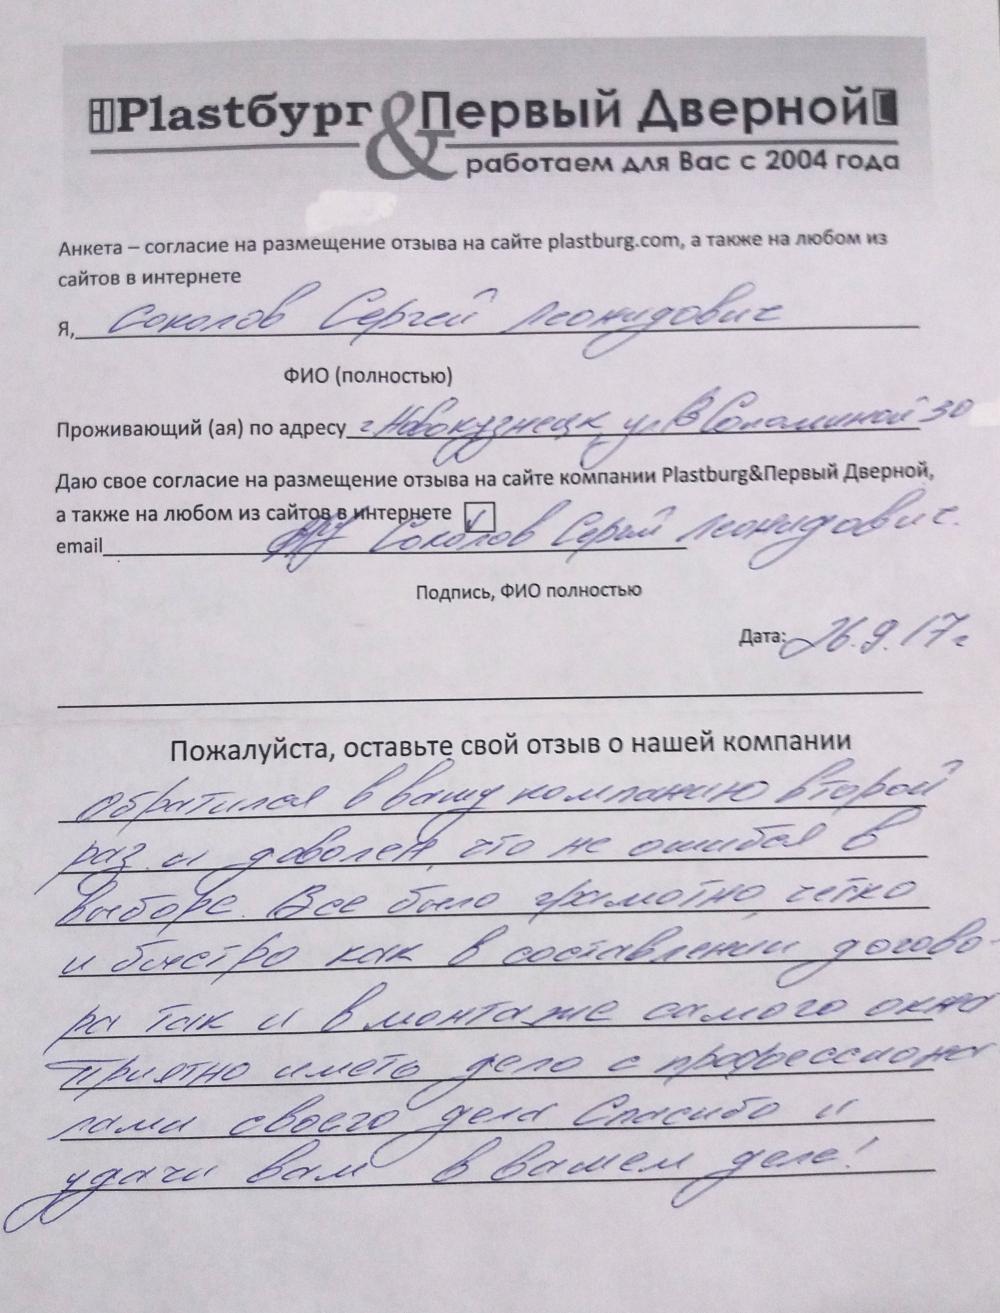 Plastбург & Первый Дверной
работаем для Вас с 2004 года
Анкета – согласие на размещение отзыва на сайте plastburg.com, а также на любом из
сайтов в интернете
Я, Соколов Сергей Леонидович
ФИО (полностью)
Проживающий (ая) по адресу г. Новокузнецк ул В Соломиной 30
Даю свое согласие на размещение отзыва на сайте компании Plastburg&Первый Дверной,
а также на любом из сайтов в интернете ✓
email Соколов Сергей Леонидович.
Подпись, ФИО полностью
Дата: 26.9.17г
Пожалуйста, оставьте свой отзыв о нашей компании
Обратился в вашу компанию второй
раз и доволен, что не ошибся в
выборе. Все было грамотно четко
и быстро как в составлении догово-
ра так и в монтаже самого окна
Приятно иметь дело с профессиона
лами своего дела Спасибо и
удачи вам в вашем деле!